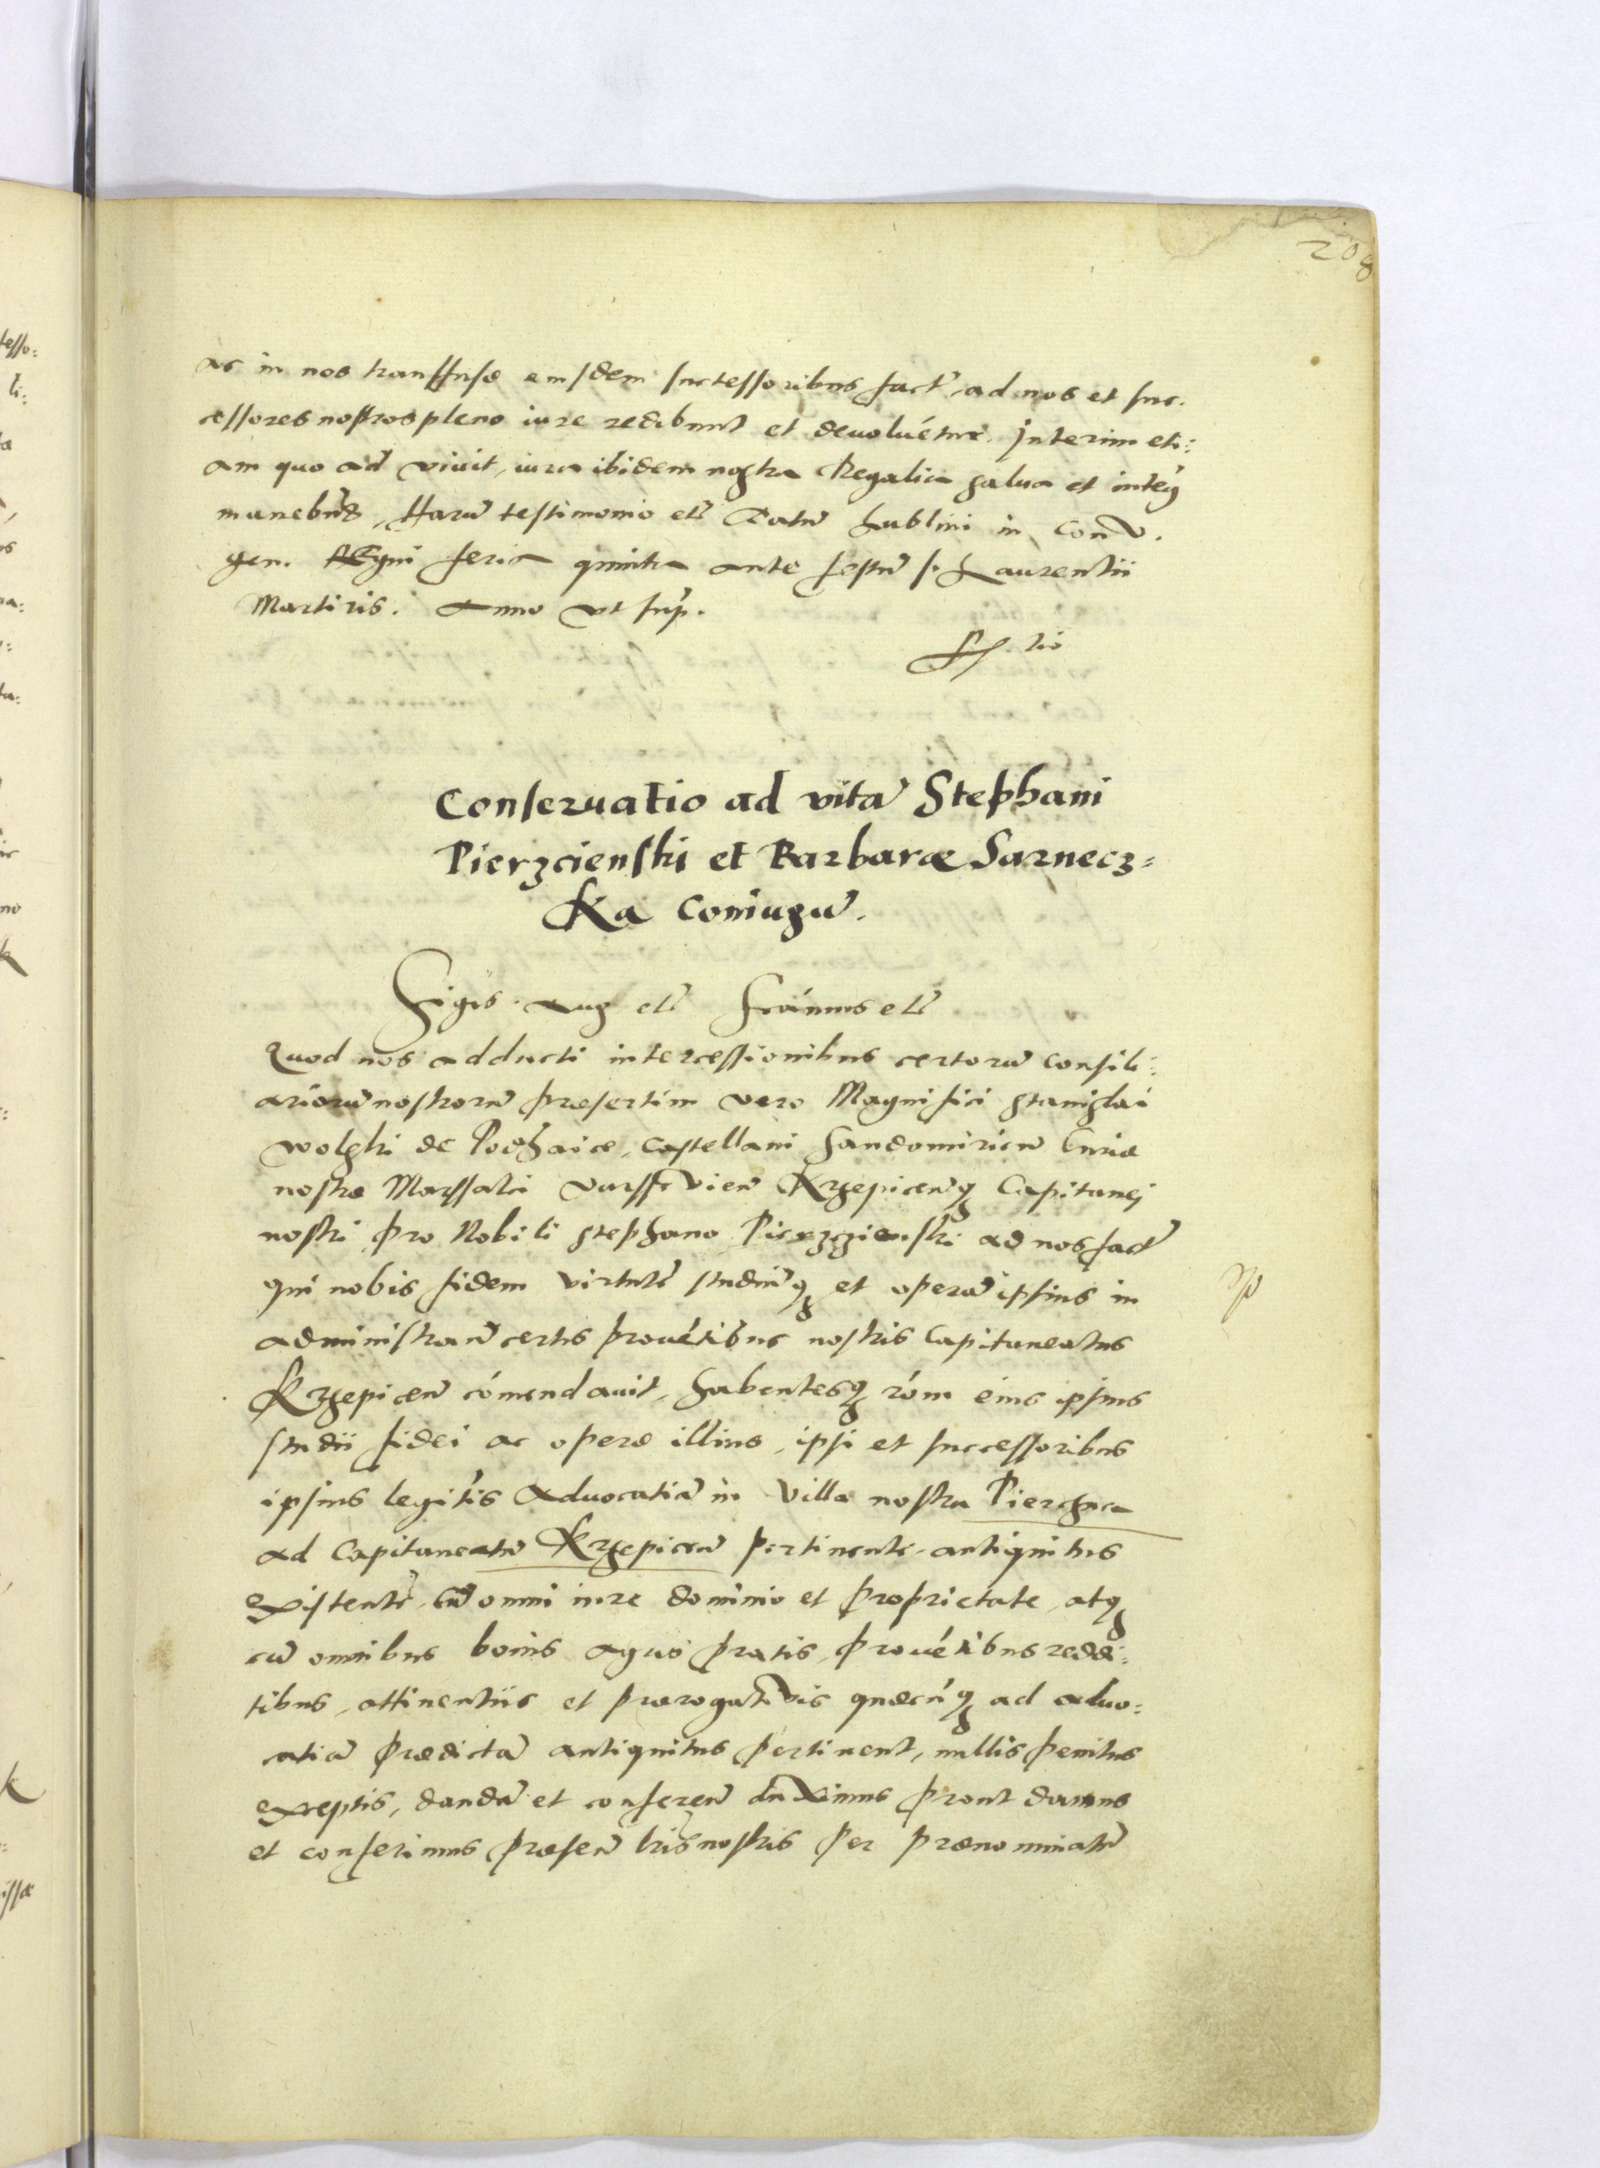 208
ac in nos transfusa eiusdem successoribus fact, ad nos et suc.
cessores nostros pleno iure redibunt et devoluétur. Interim eti:
am quo ad vivit, iura ibidem nostra Regalia salva et integ
manebūt. Harū testimonio etc̄ Datū Lublini in Conv.
gen. Regni feria quinta ante festū s. Laurentii
Martiris. Anno ut sup.
Conservatio ad vitā Stephani
Pierzcienski et Barbaræ Sarnecz=
ka Coniugū.
Sigis. Aug etc̄ Significámus etc̄
Quod nos adducti intercessionibus certorū Consili:
ariorū nostrorū præsertim vero Magnifici Stanislai
Wolski de Podhaice, Castellani Sandomirieñ Curiæ
nostræ Marssalci Varssavieñ Krzepiceñq Capitanej
nostri pro Nobili Stephano Pierzczienski ad nos fact
qui nobis fidem virtutē studiūq et operā ipsius in
administrañ certis provétibus nostris Capitaneatus
Krzepiceñ cómendavit, habentesq róm eius ipsius
studii fidei ac operæ illius, ipsi et successoribus
ipsius legitīs Advocatiā in Villa nostra Pierzchna
ad Capitaneatū Krzepiceñ pertinente antiquitus
existentē, cū omni iure dominio et proprietate, atq
cū omnibus bonis agris pratis, provétibus reddi:
tibus, attinentiis et prærogativis quæcūq ad advo:
catiā prædictā antiquitus pertinent, nullis penitus
exceptis, dandā et confereñ duximus prout damus
et conferimus præseñ lris nostris per prænominatū